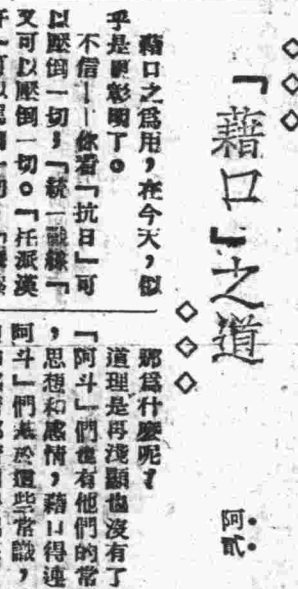 「藉口」之道
阿貳
藉口之爲用，在今天，似
乎是更彰明了。
不信——你看「抗日」可
以壓倒一切，「統一戰線」
又可以壓倒一切。「托派漢
那爲什麼呢？
道理是再淺顯也沒有了
「阿斗」們也有他們的常
，思想和感情，藉口得連
阿斗」們基於這些常識，